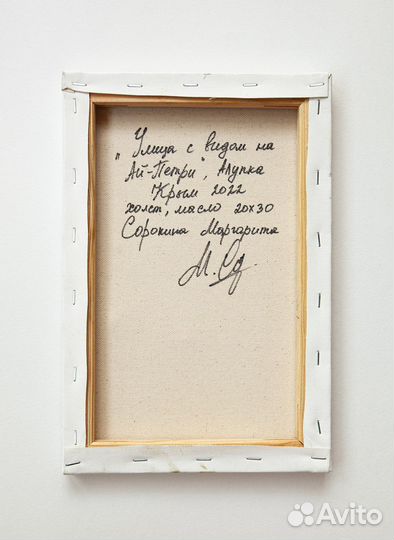 „Улица с видом на
Ай-Петри", Алупка
Крым 2022
холст, масло 20х30
Сорокина Маргарита
М. Со
Avito